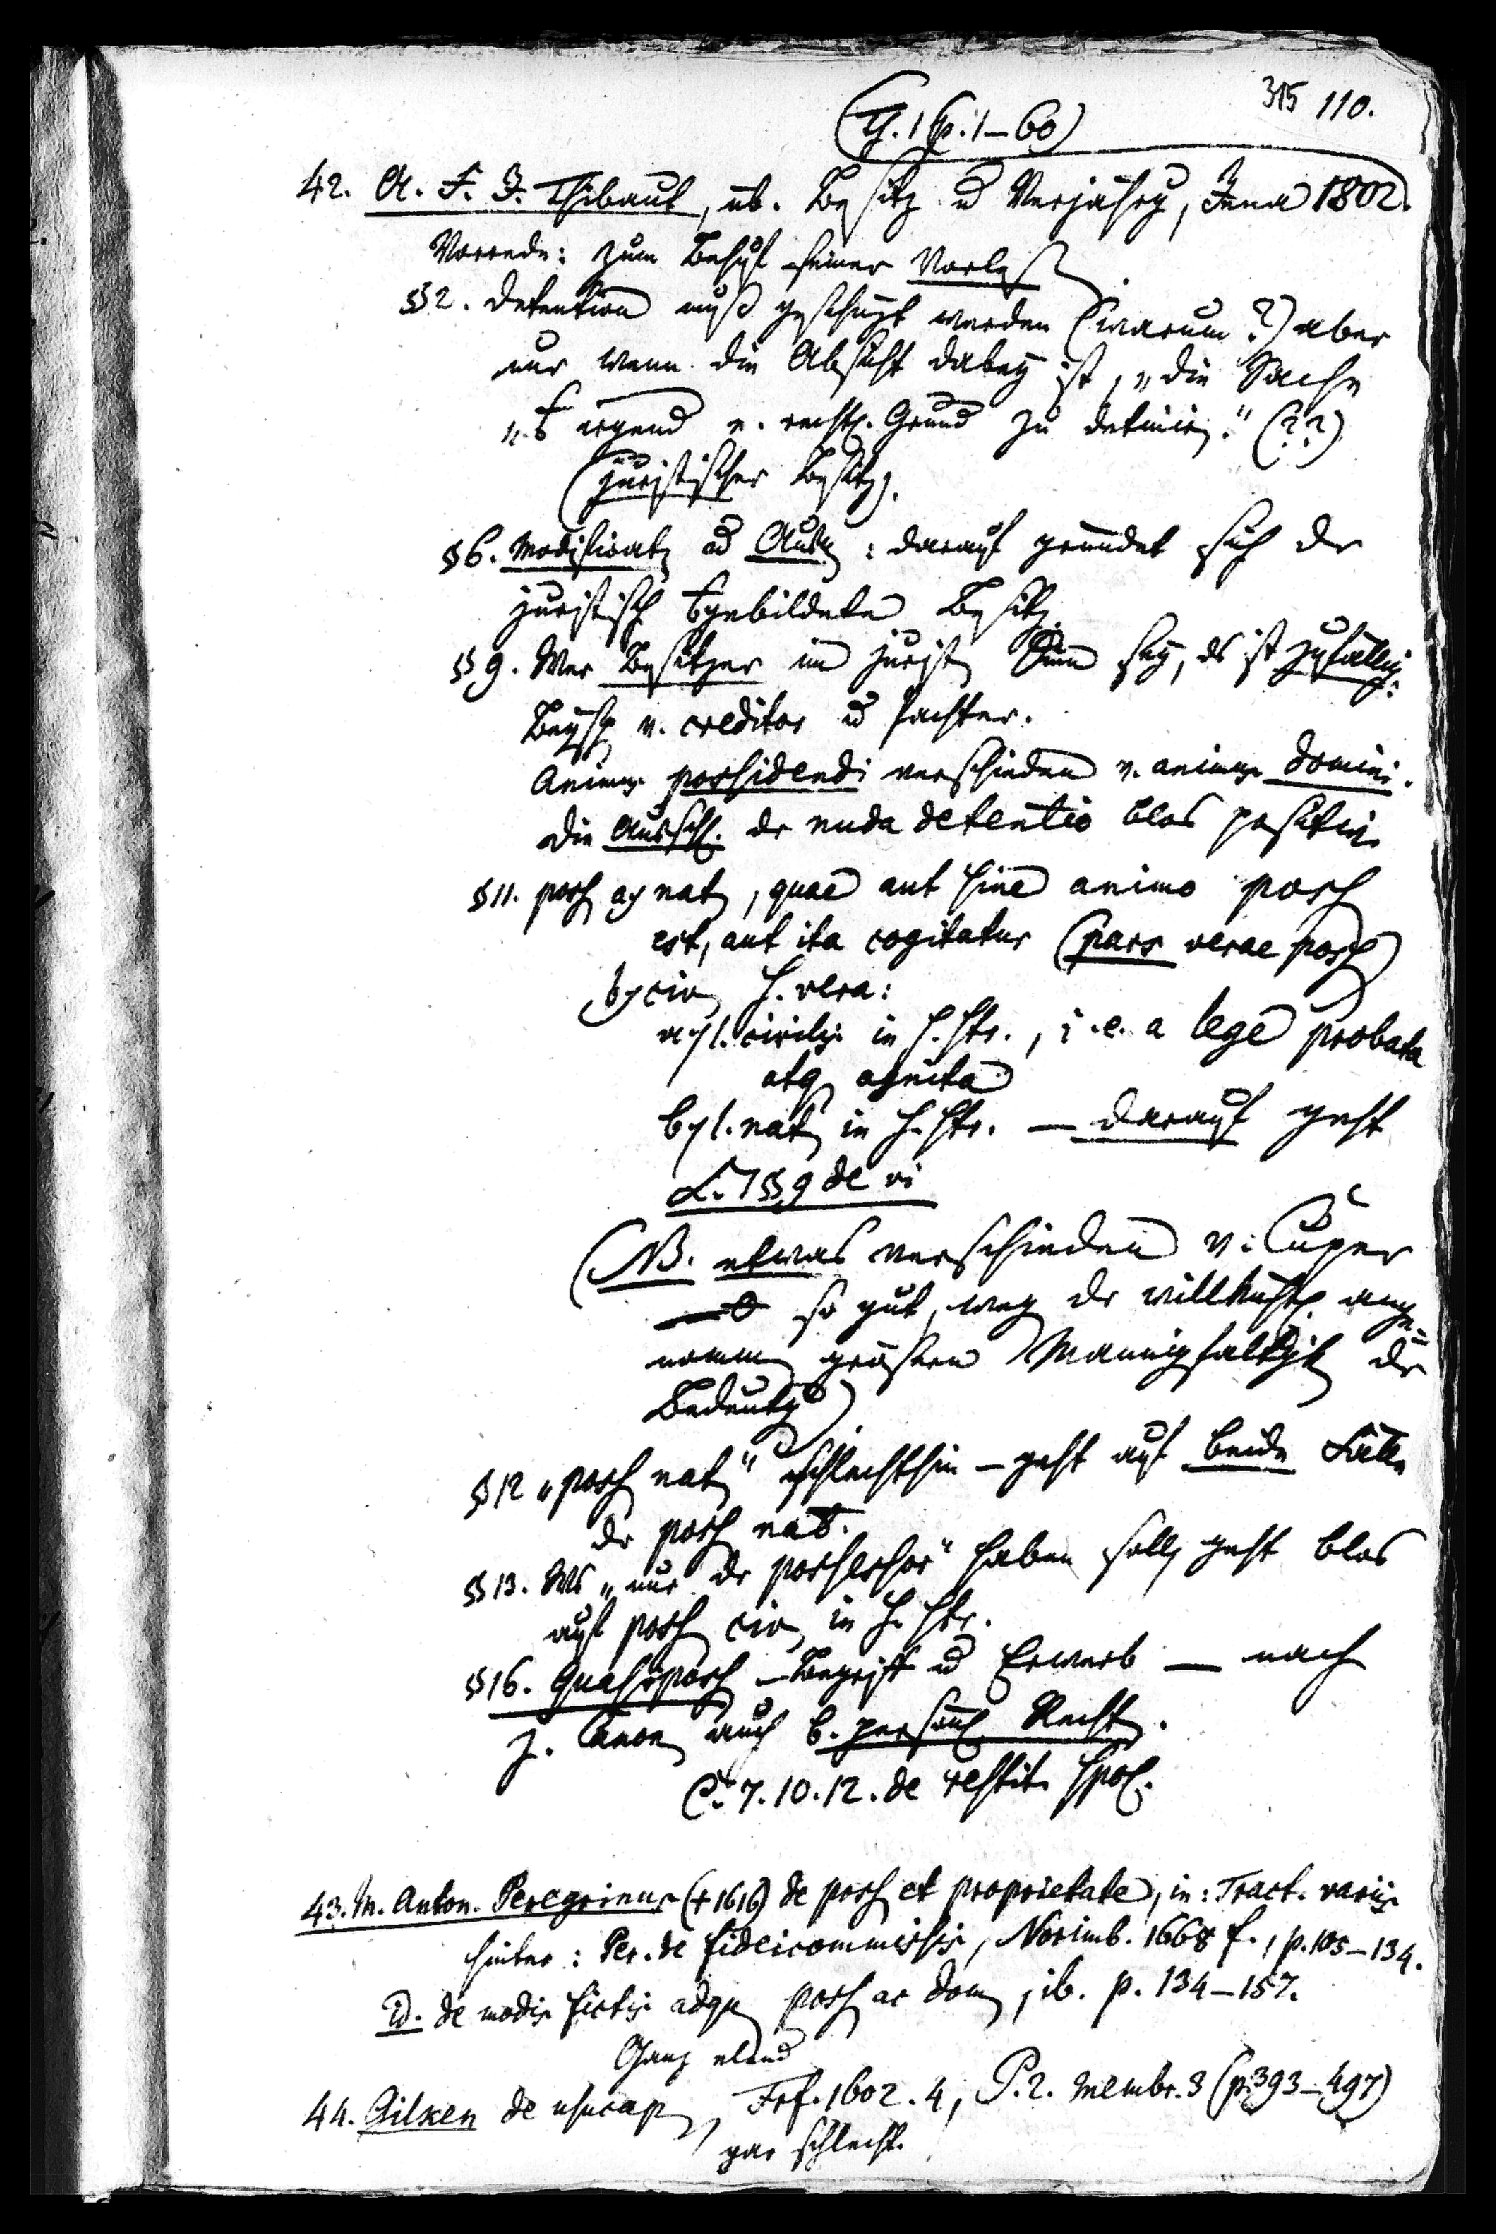 315 110.
(Th. 1 (p. 1–60)
42. A. F. J. Thibaut, üb. Besitz u Verjährg, Jena 1802.
Vorrede: zum Behuf seiner Vorles
§2. Detention muß geschüzt werden (warum?) aber
nur wenn die Absicht dabey ist, „die Sache
„ irgend e. rechtl. Grund zu detinir." (??)
(juristischer Besitz).
§6. Modificat ad Autn: darauf gründet sich der
juristisch gebildete Besitz.
§9. Wer Besitzer im jurist Sinn sey, ds ist zufällig:
Beysp v. creditor u Pachter.
Animus possidendi verschieden v. animus domini.
Die Ausschl. der nuda detentio blos positiv.
§11. poss a) nat, quae aut sine animo poss
est, aut ita cogitatur (pars verae poss)
b) civ s. vera:
a) civilis in s. str., i.e. a lege probata
atq agnita
b) nat in s. str. — darauf geht
L. 7 §9 de vi
(NB. etwas verschieden v. Cuper
so gut, weg der willkührl. ange=
nommn größern Mannigfaltigkt der
Bedeutg)
§12 „poss nat" schlechthin – geht auf beide Fälle
der poss nat.
§13. Ws „nur der possessor" haben soll, geht blos
auf poss civ in s. str.
§16. Quasiposs – Begriff u Erwerb — nach
j. Canon auch b. persönl Recht.
C. 7. 10. 12. de restit spol.
43. M. Anton. Peregrinus (+ 1616) de poss et proprietate, in: Tract. varii
hinter: Per. de fideicommissis, Norimb. 1668 f., p. 105–134.
id. de modis fictis adqu poss ac dom, ib. p. 134–157.
Ganz elend
44. Gilken de usucap, Frf. 1602. 4, P. 2. membr. 3 (p. 393–497)
gar schlecht.